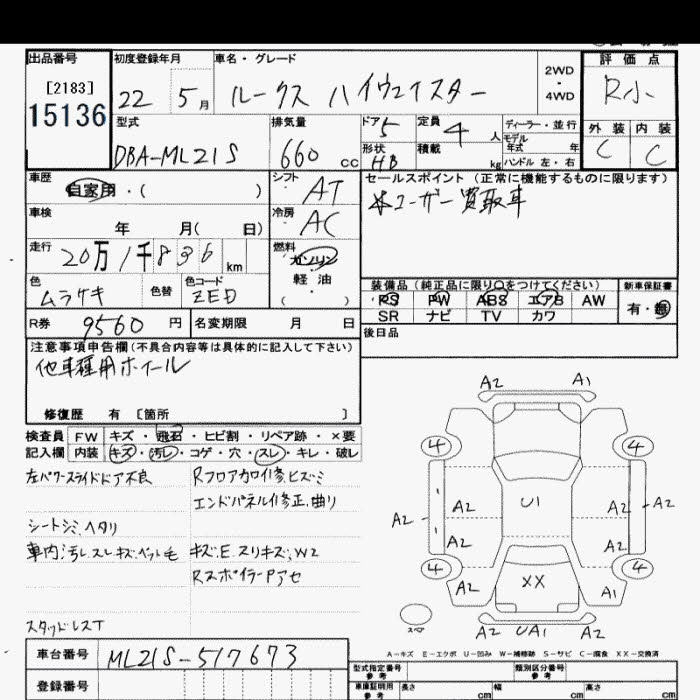 出品番号
[2183]
15136
初度登録年月
22 5月
車名・グレード
ルークス ハイウェイスター
2WD
4WD
評価点
R小
外装 内装
C C
型式
DBA-ML21S
排気量
660 cc
ドア 5
形状 HB
定員 4 人
積載 kg
ディーラー・並行
モデル年式 年
ハンドル 左・右
車歴
自家用・( )
シフト AT
車検
年 月( 日)
冷房 AC
走行
20万1千836 km
燃料
ガソリン
軽油
( )
色 ムラサキ
色替
色コード ZED
R券 9560 円
名変期限 月 日
セールスポイント(正常に機能するものに限ります)
※ユーザー買取車
装備品(純正品に限り○をつけてください)
新車保証書
PS PW ABS エアB AW
SR ナビ TV カワ
有・無
後日品
注意事項申告欄(不具合内容等は具体的に記入して下さい)
他車種用ホイール
修復歴 有 [箇所 ]
検査員 FW キズ・飛石・ヒビ割・リペア跡・×要
記入欄 内装 キズ・汚レ・コゲ・穴・スレ・キレ・破レ
左パワースライドドア不良
シートシミ、ヘタリ
車内汚レ、スレ、キズ、ペット毛
スタッドレスT
Rフロアカワイ修、ヒズミ
エンドパネル修正、曲リ
キズ、E、スリキズ、W2
RスポイラーPアセ
A2 A1
4 4
A2 A2 U1 A2 A2
A2 A2
4 4
A2 XX A1
スペア
A2 UA1 A2
A-キズ E-エクボ U-凹み W-補修跡 S-サビ C-腐食 XX-交換済
車台番号 ML21S-517673
登録番号
型式指定番号 参考
類別区分番号 参考
車庫証明用 参考
長さ cm 幅 cm 高さ cm